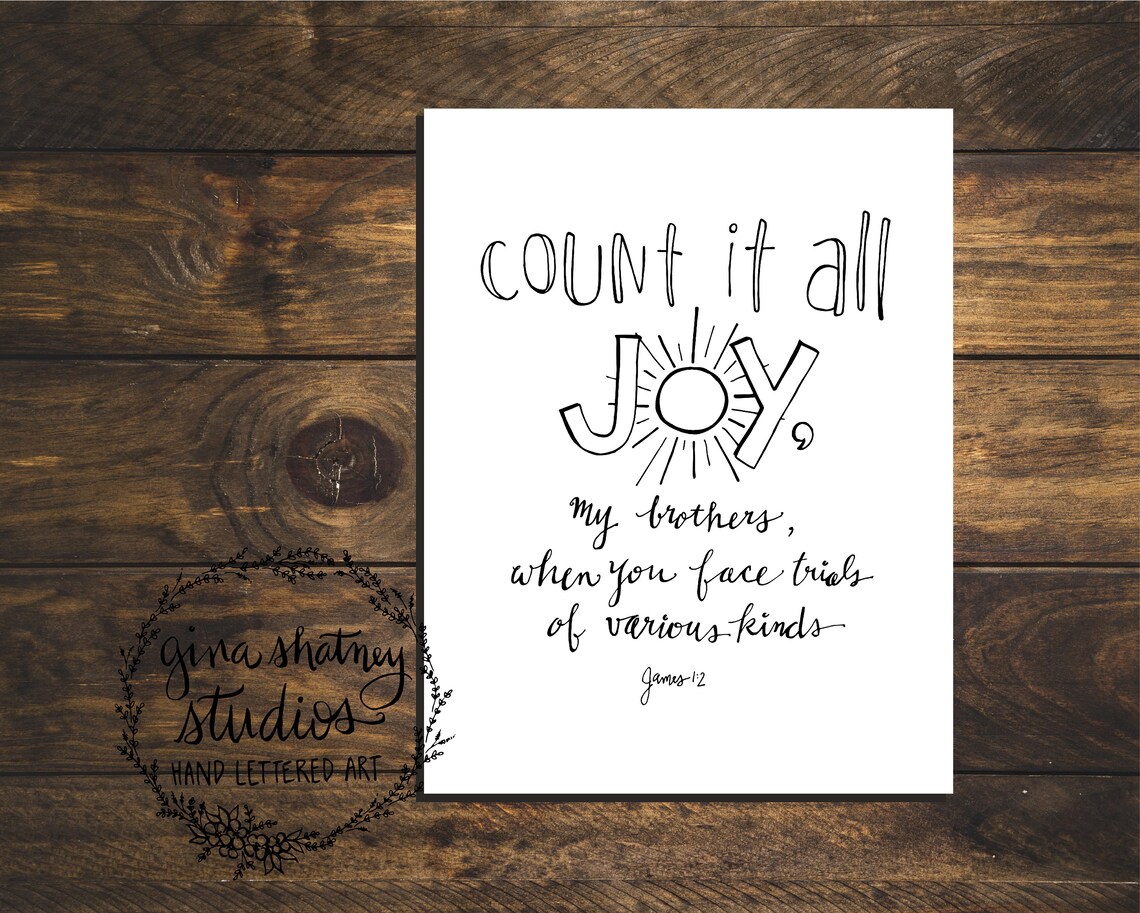 count it all
JOY,
My brothers,
when you face trials
of various kinds
James 1:2
gina shatney
studios
HAND LETTERED ART